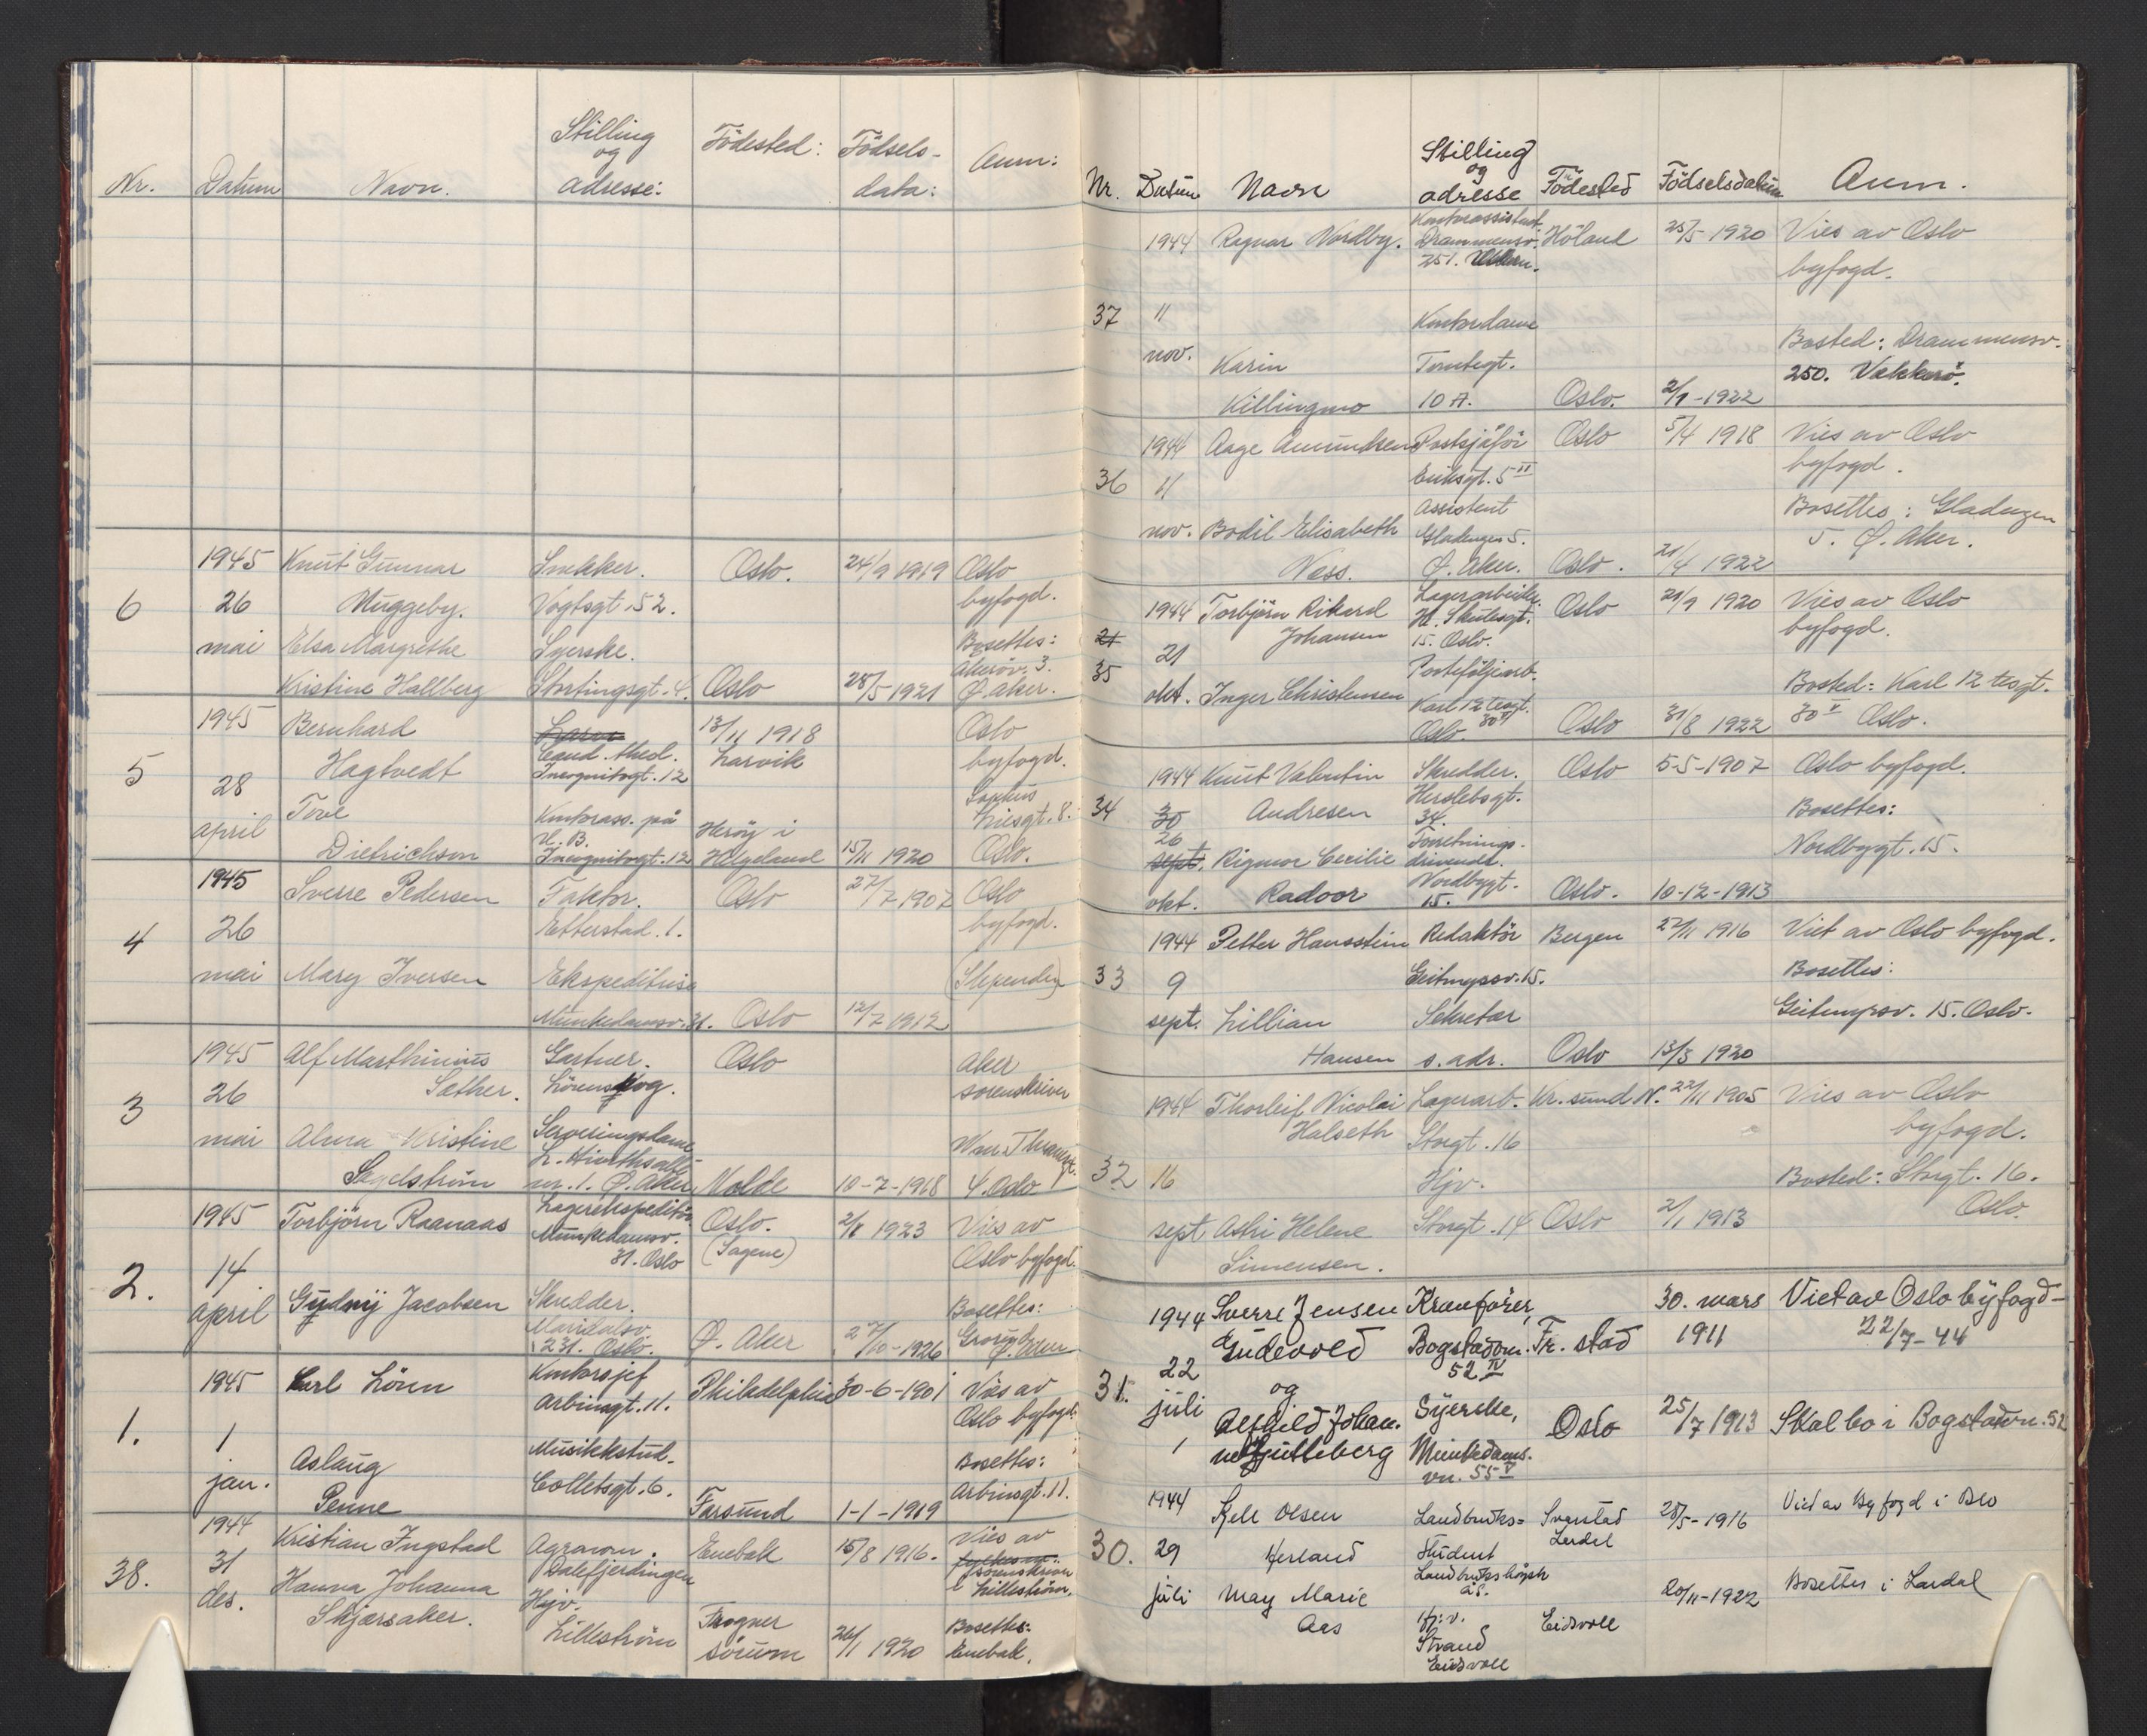 Nr. Datum Navn. Stilling og adresse: Födested: Födsels-data: Anm:
1945 Knut Gunnar Snekker. Oslo. 24/9 1919 Oslo
6 26 Muggeby. Vogtsgt. 52. byfogd.
mai Elsa Margrethe Syerske. Bosettes:
Akersv. 3.
Kristine Hallberg Stortingsgt. 4. Oslo 28/5 1921 Ø. Aker.
1945 Bernhard 13/11 1918 Oslo
5 Hagtvedt Cand. theol. Larvik byfogd.
28 Incognitogt. 12
Tove Kontorass. på Sophus
april H. B. Heröy i Liesgt. 8.
Dietrichson Incognitogt. 12 Helgeland 15/11 1920 Oslo.
1945 Sverre Pedersen Faktor. Oslo 27/7 1907 Oslo
4 26 Etterstad. 1. byfogd.
mai Mary Iversen Ekspeditrise (Slependen)
Munkedamsv. 31. Oslo 12/7 1912
1945 Alf Marthinius Gartner. Oslo Aker
3 26 Sæther. Lörenskog. sorenskriver
mai Alma Kristine Serveringsdame
Segelström nr. 1. Ø. Aker Molde 10-7-1918 4. Oslo
1945 Torbjörn Raanaas Lagerekspeditör Oslo. 2/8 1923 Vies av
Munkedamsv. 31. Oslo (Sagene) Oslo byfogd.
2. 14
april Gudny Jacobsen Skredder. Bosettes:
Maridalsv. 231. Oslo. Ø. Aker 27/10-1926
1945 Carl Lören Kontorsjef Philadelphia 30-6-1901 Vies av
Arbinsgt. 11. Oslo byfogd.
1. 1
Aslaug Musikkstud. Bosettes:
jan. Penne Colletsgt. 6. Farsund 1-1-1919 Arbinsgt. 11.
1944 Kristian Ingstad Agronom. Enebak 15/8 1916. Vies av
38. 31 Dalefjerdingen sorenskriver
des. Hanna Johanna Hjv. i Lilleström.
Skjærsaker. Lilleström Frogner Bosettes:
Sörum 26/1 1920 Enebak.
Nr. Datum Navn Stilling og adresse Födested Födselsdatum Anm.
1944 Ragnar Nordby. Kontorassistent. Höland 25/5 1920 Vies av Oslo
Drammensv. 251. byfogd.
37 11 Kontordame
nov. Karin Tomtegt. Bosted: Drammensv.
Killingmo 10 A. Oslo. 2/1-1922 250. Vækkerö.
1944 Aage Amundsen Postsjåför Oslo 5/4 1918 Vies av Oslo
36 11 Eriksgt. 5 II byfogd.
Assistent Bosettes: Gladengen
nov. Bodil Elisabeth Gladengen 5. 5. Ø. Aker.
Næss. Ø. Aker. Oslo. 21/4 1922
1944 Torbjörn Rikard Lagerarbeider. Oslo 21/9 1920 Vies av Oslo
21 Johansen H. Skultesgt. 15. Oslo. byfogd.
35 21 Porteföljearb.
okt. Inger Christensen Karl 12 tesgt. Bosted: Karl 12 tesgt.
30 V Oslo. Oslo 31/8 1922 30 V Oslo.
1944 Knut Valentin Skredder. Oslo 5-5-1907 Oslo byfogd.
34 30 Andresen Herslebsgt. 34. Bosettes:
26 Forretnings-
sept. Rigmor Cecilie drivende. Nordbygt. 15.
okt. Radoor Nordbygt. 15. Oslo. 10-12-1913
1944 Petter Hansstein Redaktör Bergen 27/11 1916 Viet av Oslo byfogd.
33 9 Geitmyrsv. 15. Bosettes:
sept. Lillian Sekretær Geitmyrsv. 15. Oslo.
Hansen s. adr. Oslo 13/3 1920
1944 Thorleif Nicolai Lagerarb. Kr. sund N. 22/11 1905 Vies av Oslo
Halseth Storgt. 16 byfogd.
32 16 Hjv. Bosted: Storgt. 16.
sept Astri Helene Storgt. 14 Oslo 2/1 1913 Oslo.
Simensen.
1944 Sverre Jensen Kranförer, 30. mars Viet av Oslo byfogd-
Gudevold Bogstadvn. Fr. stad 1911 22/7-44
22 52 IV
31. og
juli Alfhild Johan- Syerske, Oslo 25/7 1913 Skal bo i Bogstadvn. 52
Munkedams-
vn. 55 V
1944 Kjell Olsen Landbruks= 28/5-1916 Viet av Byfogd i Oslo
30. 29 Herland Student Lerdal
Landbrukshögsk
juli May Marie Ås. 20/11-1922 Bosetter i Lardal
Aas Hj:v. Eidsvoll
Strand
Eidsvoll